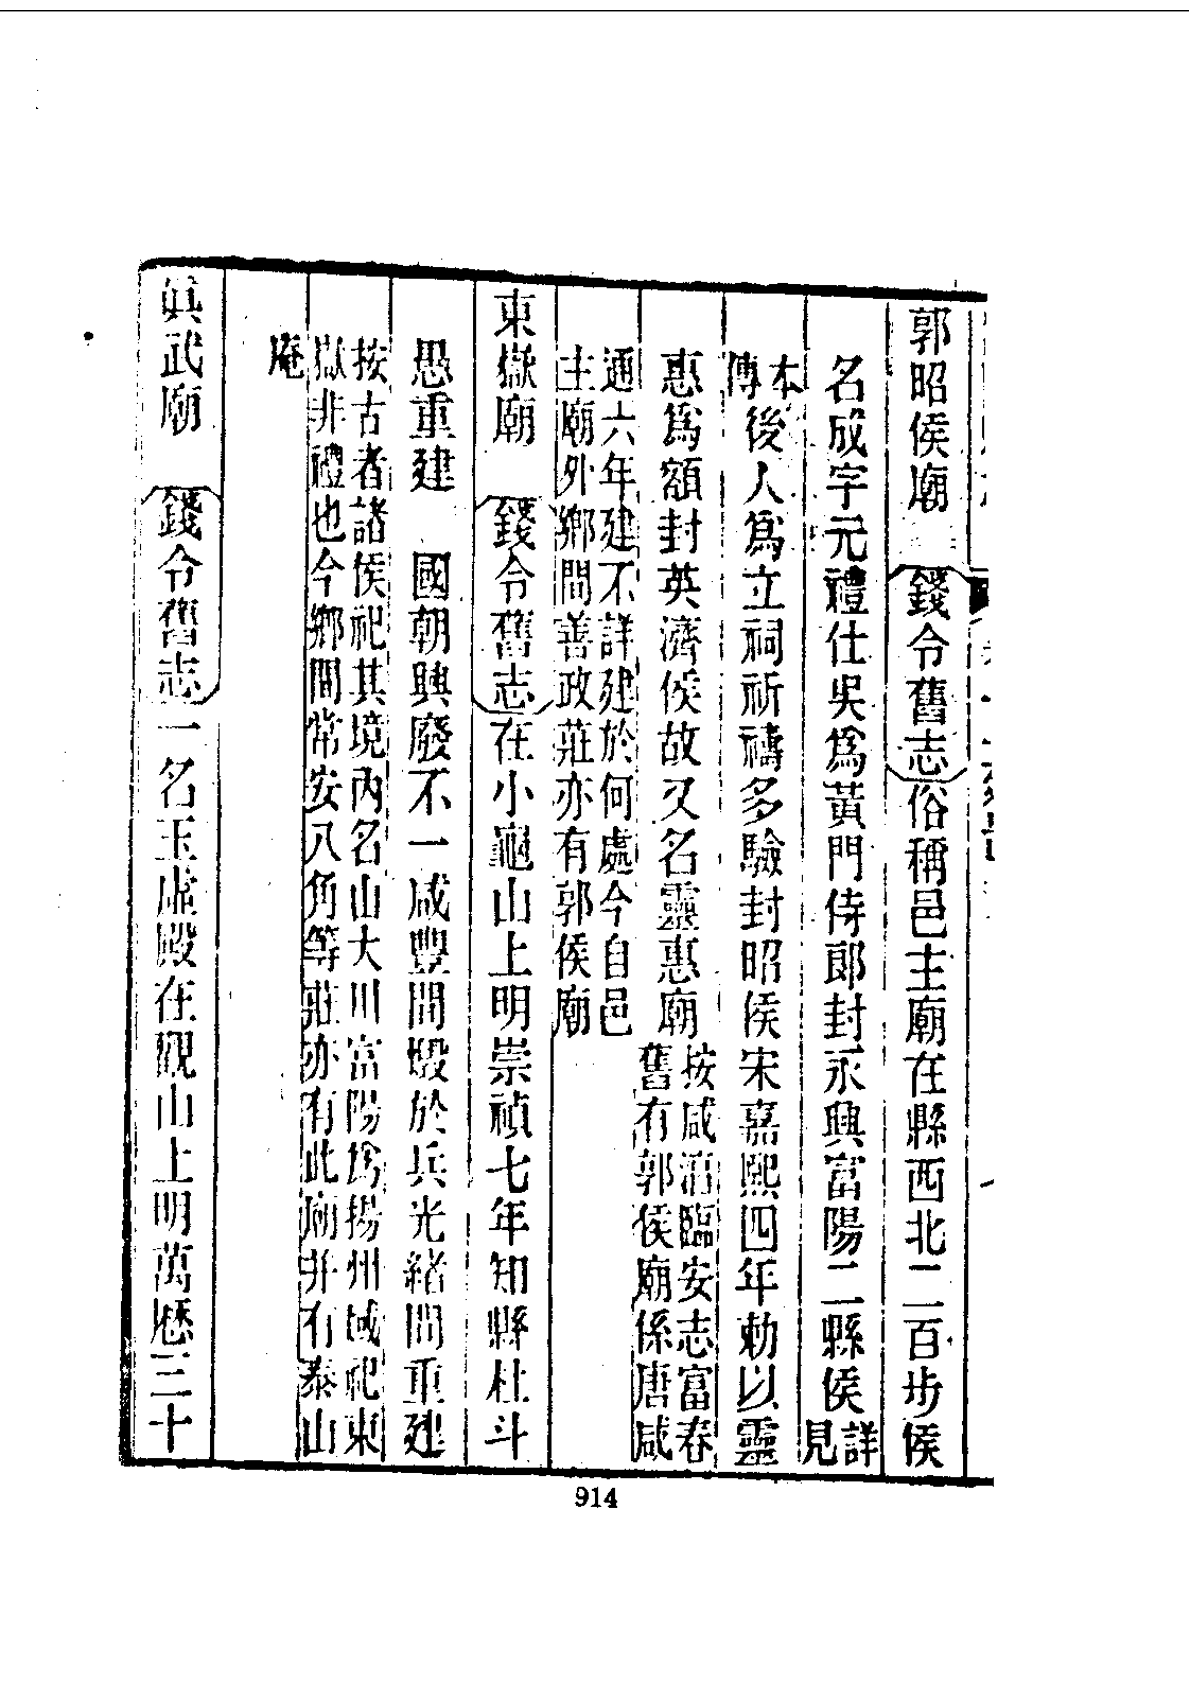 郭昭侯廟　錢令舊志俗稱邑主廟在縣西北二百步侯
名成字元禮仕吳爲黃門侍郎封永興富陽二縣侯詳見
本傳後人爲立祠祈禱多驗封昭侯宋嘉熙四年勅以靈
惠爲額封英濟侯故又名靈惠廟按咸淳臨安志富春
舊有郭侯廟係唐咸
通六年建不詳建於何處今自邑
主廟外鄉間善政莊亦有郭侯廟
東嶽廟　錢令舊志在小龜山上明崇禎七年知縣杜斗
愚重建　國朝興廢不一咸豐間燬於兵光緒間重建
按古者諸侯祀其境內名山大川富陽爲揚州域祀東
嶽非禮也今鄉間常安八角等莊亦有此廟并有泰山
庵
眞武廟　錢令舊志一名玉虛殿在觀山上明萬歷三十
914